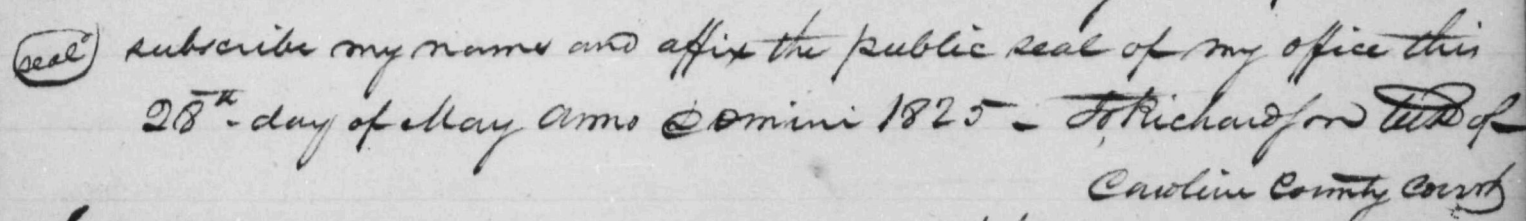 seal subscribe my name and affix the public seal of my office this
28th day of May Anno Domini 1825 - Jo Richardson Clk of
Caroline County Court